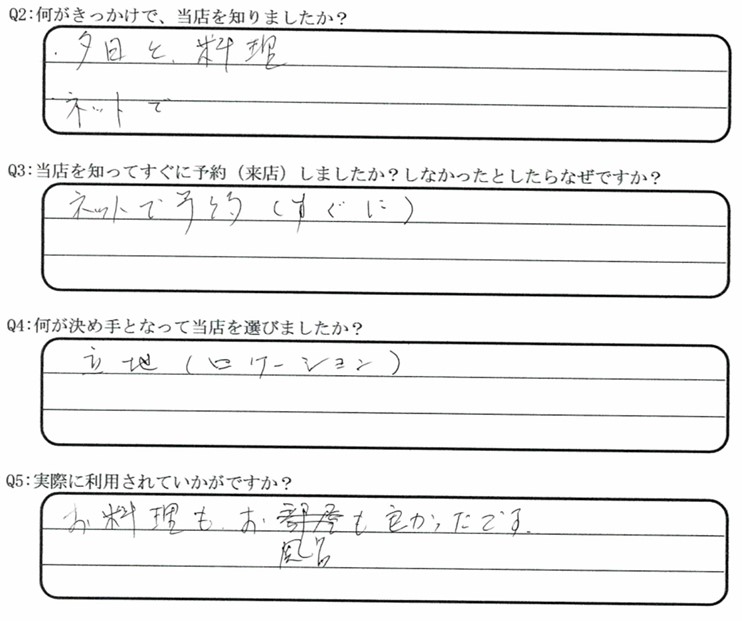 Q2:何がきっかけで、当店を知りましたか？
・夕日と、料理
ネットで
Q3:当店を知ってすぐに予約（来店）しましたか？しなかったとしたらなぜですか？
ネットで予約（すぐに）
Q4:何が決め手となって当店を選びましたか？
立地（ロケーション）
Q5:実際に利用されていかがですか？
お料理も、お部屋も良かったです。
風呂